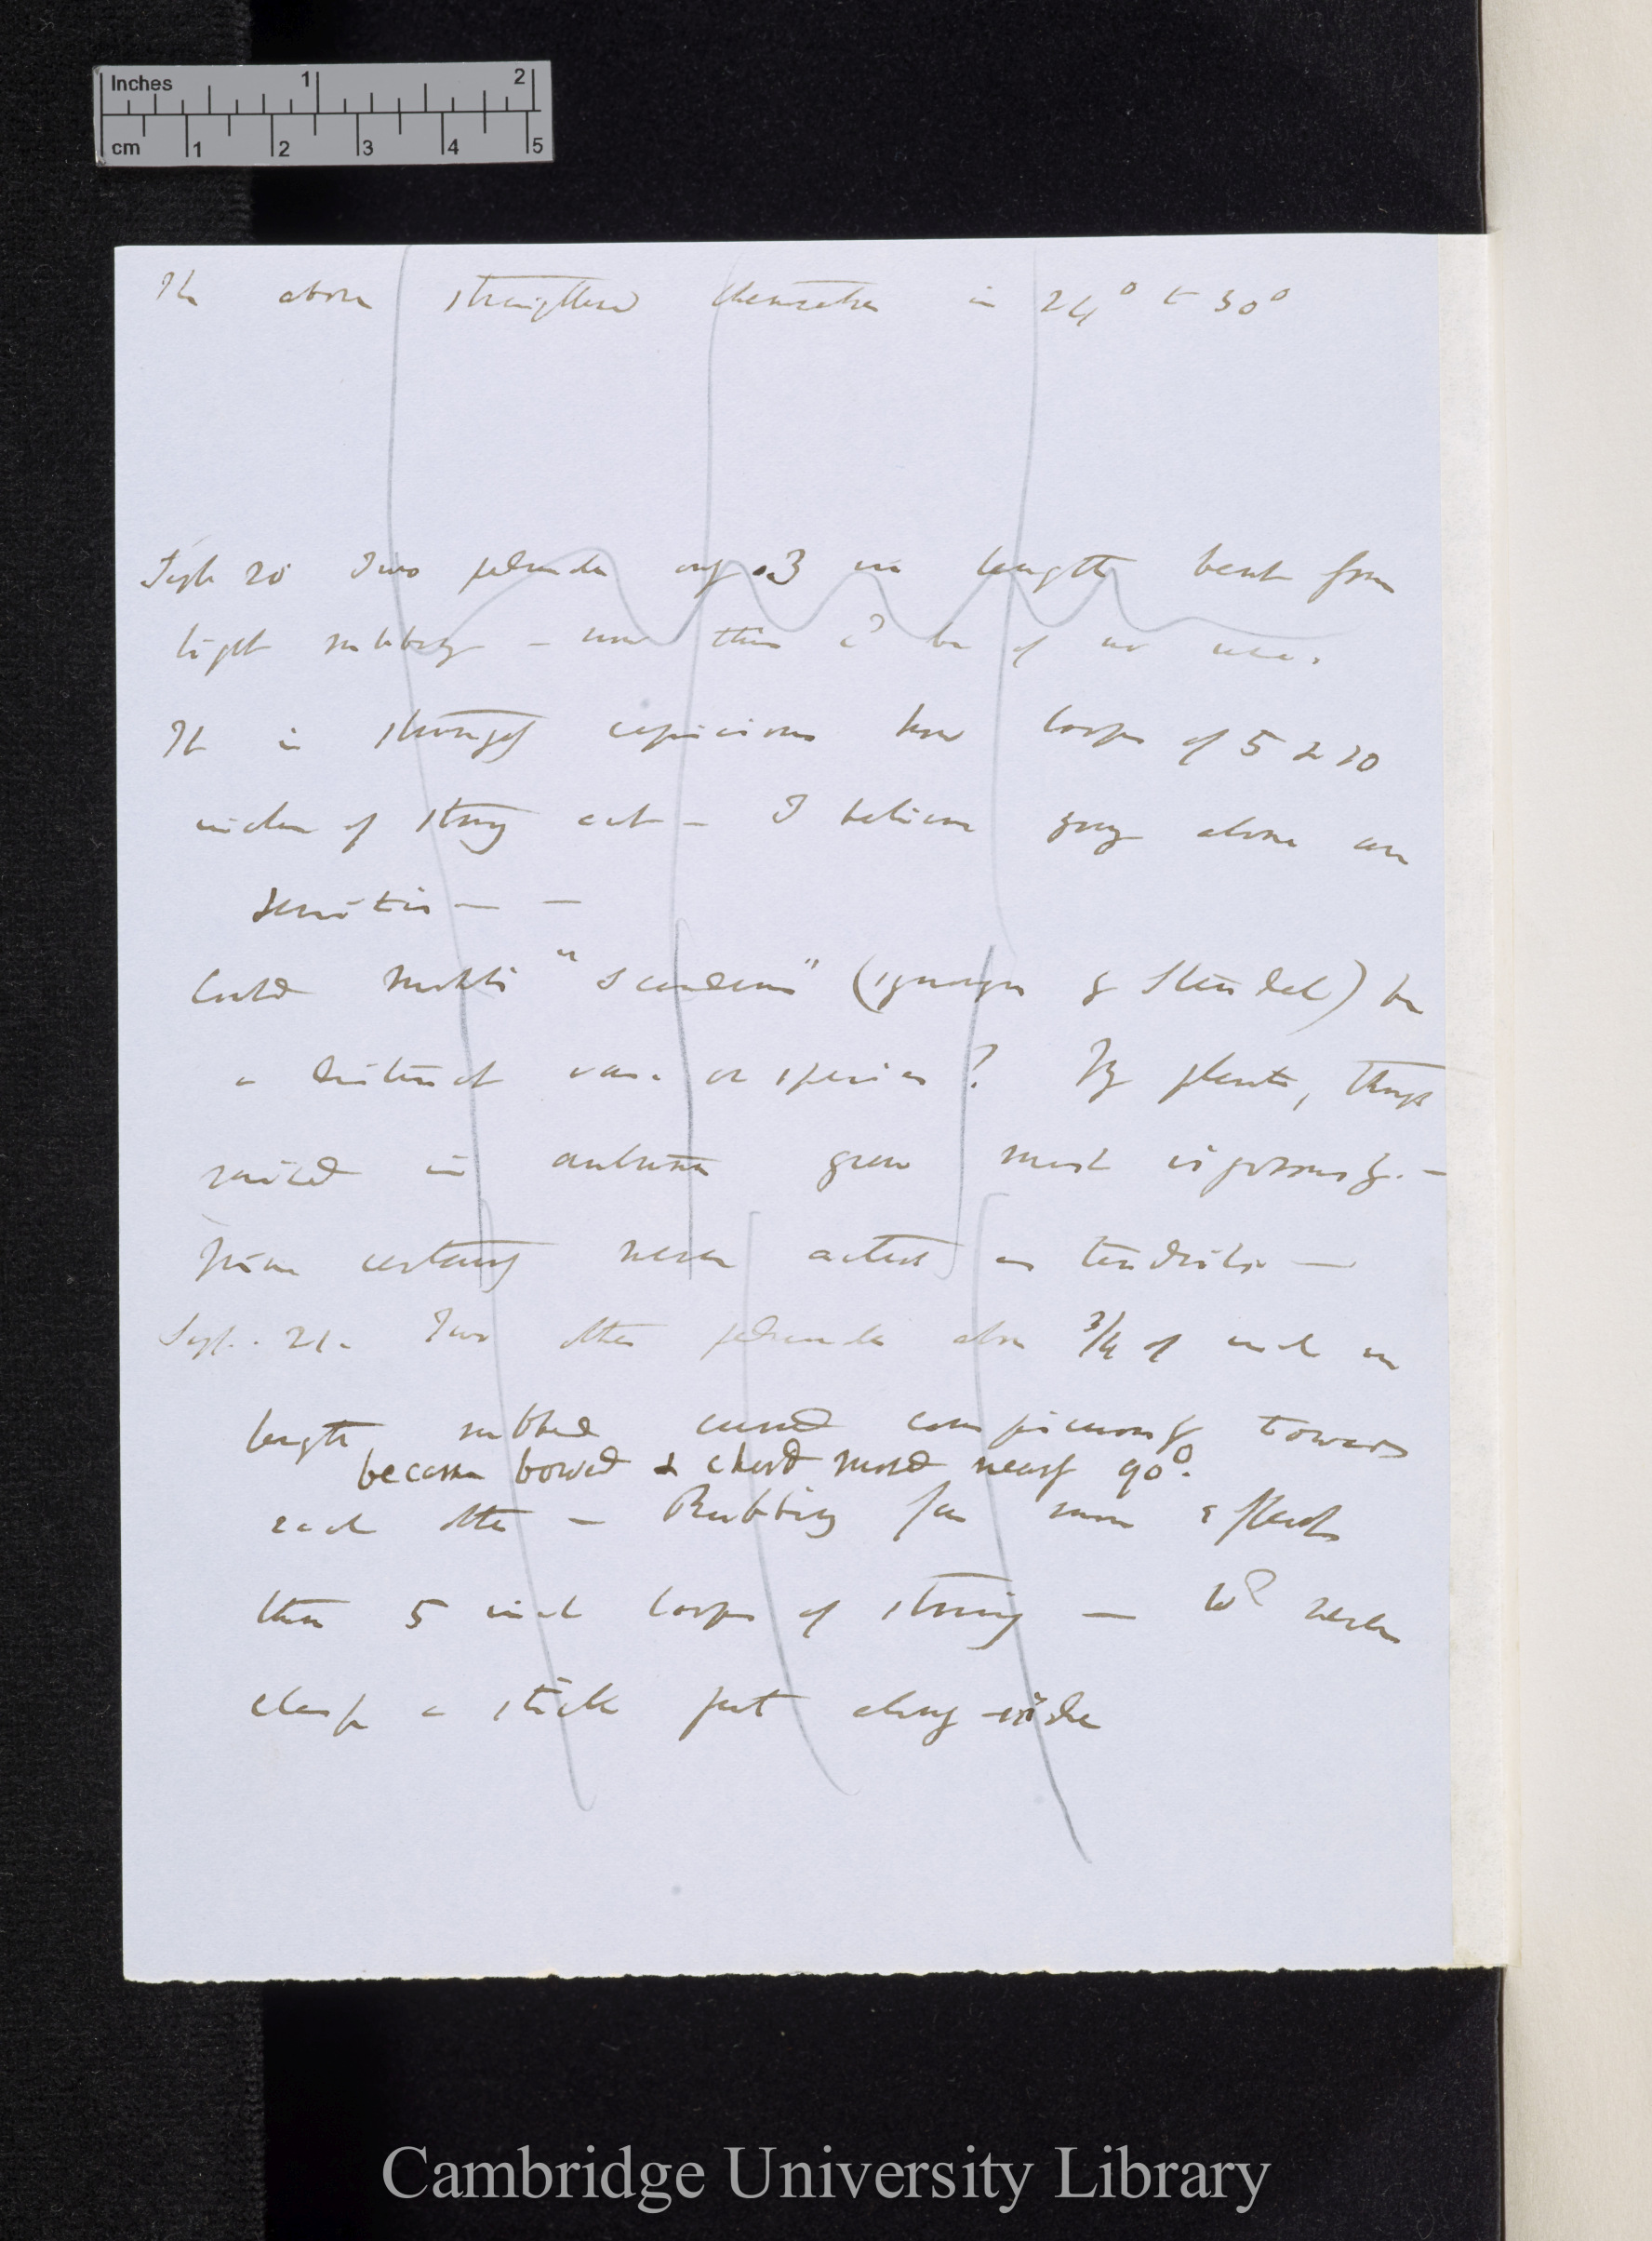 Inches 1 2
cm 1 2 3 4 5
The above straightened themselves in 24° to 30°
Sept 20 Two peduncles only .3 in length bent from
light rubbing – now this cd be of no use.
It is strangely capricious how loops of 5 & 10
inches of string act – I believe young alone are
sensitive — —
Could Mr "scandens" (synonym of Steudel) be
a distinct var. or species? My plants, though
raised in autumn grew most vigorously. –
from certainly never acted as tendrils —
Sept. 21. Two other peduncles above 3/4 of inch in
length rubbed curved conspicuously towards
became bowed & chord moved nearly 90°.
each other – Rubbing far more effects
than 5 inch loops of string — wd never
clasp a stick put along-side
Cambridge University Library